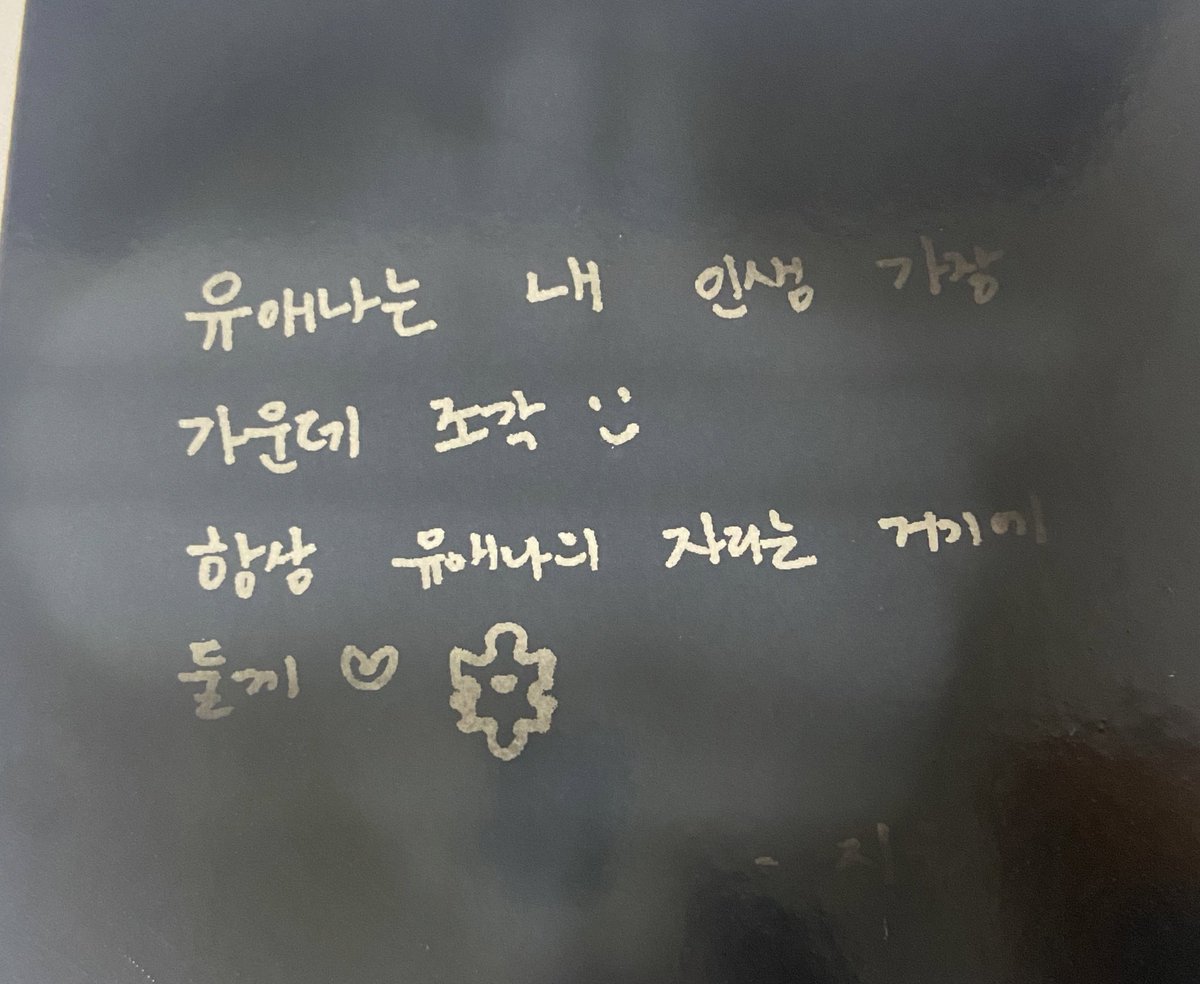 유애나는 내 인생 가장
가운데 조각 :)
항상 유애나의 자리는 거기에
둘게 ♡
- 지